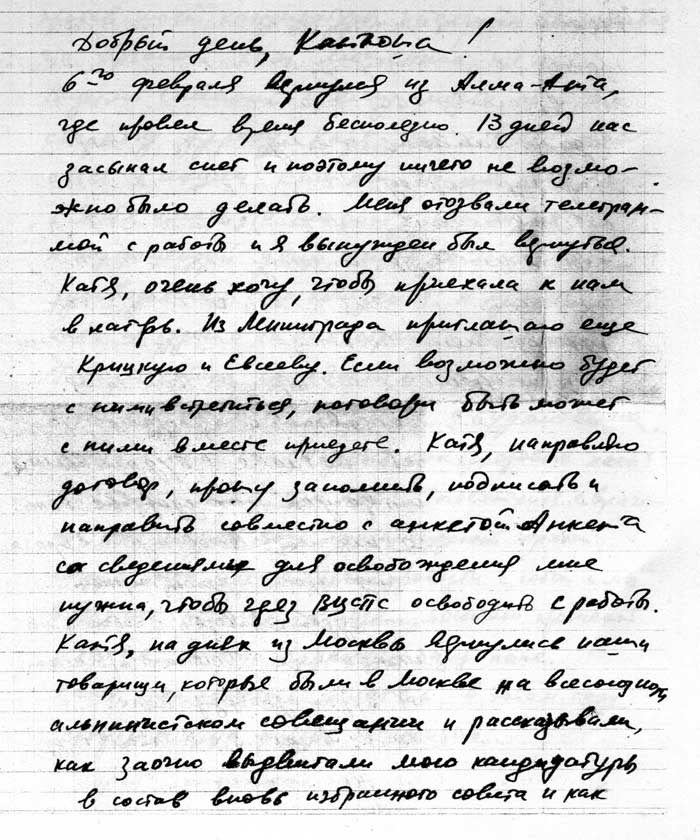 Добрый день, Катюша!
6го февраля вернулся из Алма-Ата,
где провел время бесполезно. 13 дней нас
засыпал снег и поэтому ничего не возмо-
жно было делать. Меня отозвали телеграм-
мой с работы и я вынужден был вернуться.
Катя, очень хочу, чтобы приехала к нам
в лагерь. Из Ленинграда приглашаю еще
Крицкую и Евсееву. Если возможно будет
с ними встретиться, поговори быть может
с ними вместе приедете. Катя, направляю
договор, прошу заполнить, подписать и
направить совместно с анкетой. Анкета
со сведениями для освобождения мне
нужна, чтобы чрез ВЦСПС освободить с работы.
Катя, на днях из Москвы вернулись наши
товарищи, которые были в Москве на всесоюзном
альпинистском совещании и рассказывали,
как заочно выдвигали мою кандидатуру
в состав вновь избранного совета и как